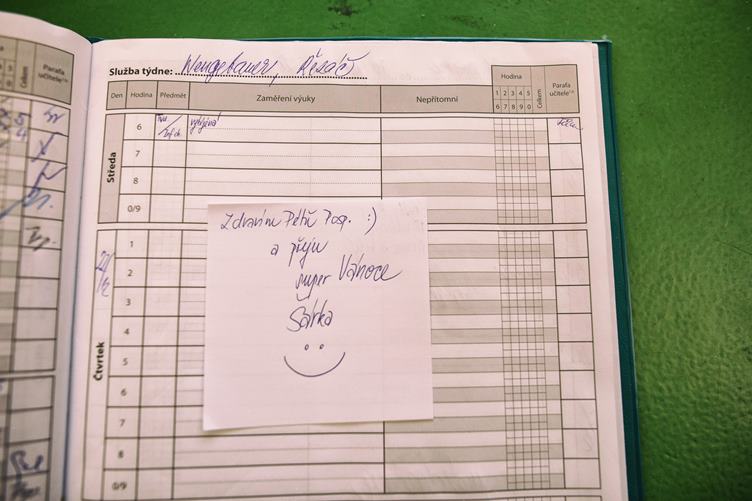 Parafa
učitele
Celkem
Služba týdne: Neugebauer, Řezáč
Den Hodina Předmět Zaměření výuky Nepřítomni Hodina Celkem Parafa učitele
1 2 3 4 5
6 7 8 9 0
Středa
6
7
8
0/9
Čtvrtek
1
2
3
4
5
6
7
8
0/9
Zdravím Péťu Posp. :)
a přeju
super Vánoce
Šárka